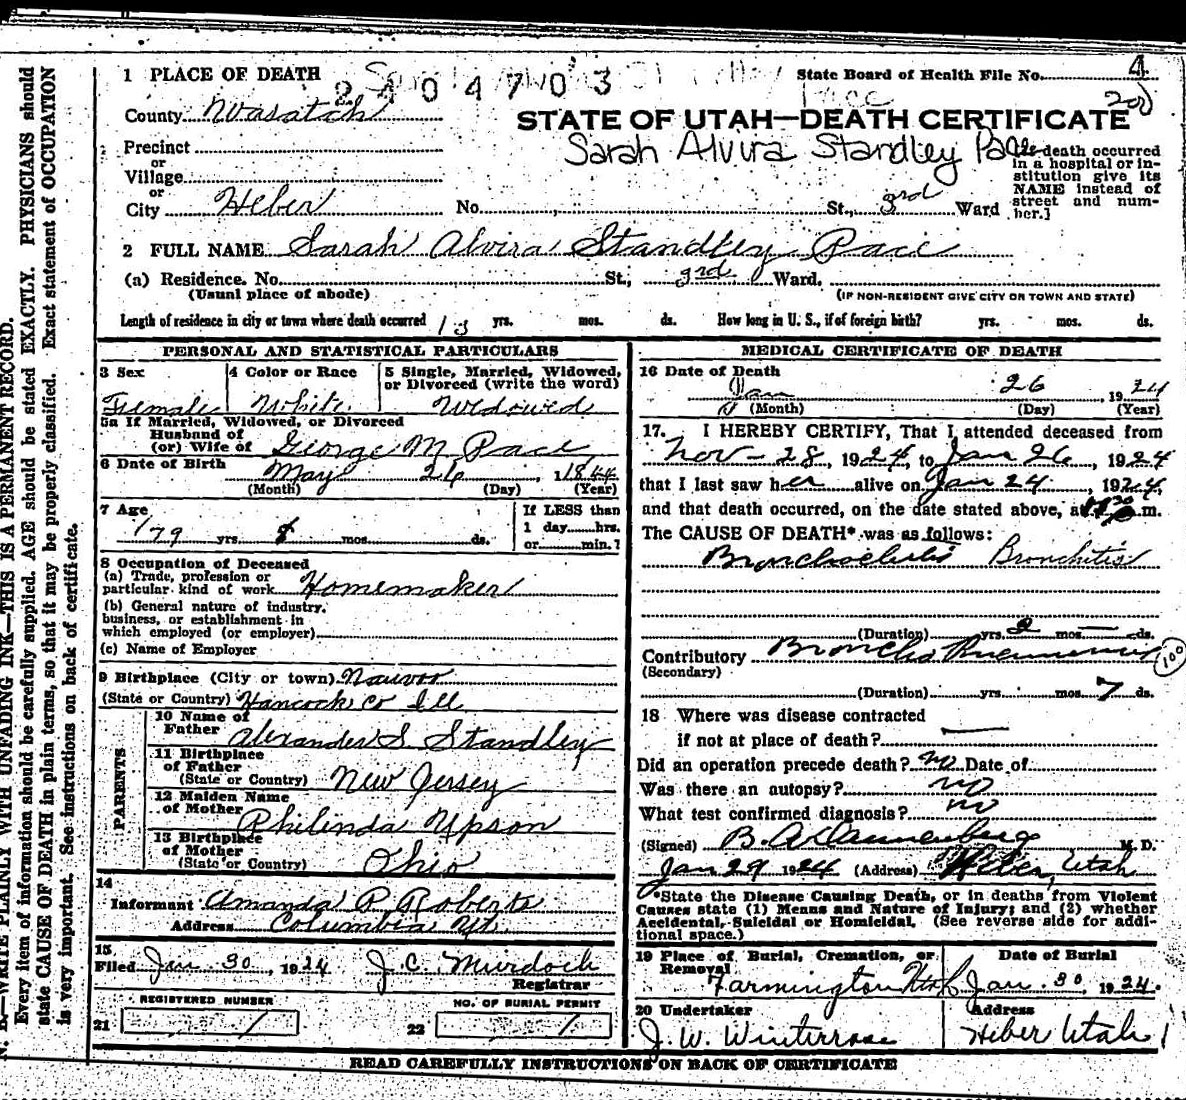 1 PLACE OF DEATH 2404703 State Board of Health File No. 4
County Wasatch 200
STATE OF UTAH—DEATH CERTIFICATE
Precinct
Sarah Alvira Standley Pace
or
Village
or
City Heber No. St., 3rd Ward
death occurred
in a hospital or in-
stitution give its
NAME instead of
street and num-
ber.]
2 FULL NAME Sarah Alvira Standley Pace
(a) Residence. No. St., 3rd Ward.
(Usual place of abode) (IF NON-RESIDENT GIVE CITY OR TOWN AND STATE)
Length of residence in city or town where death occurred 13 yrs. mos. ds. How long in U. S., if of foreign birth? yrs. mos. ds.
PERSONAL AND STATISTICAL PARTICULARS
3 Sex 4 Color or Race 5 Single, Married, Widowed,
or Divorced (write the word)
Female White Widowed
5a If Married, Widowed, or Divorced
Husband of
(or) Wife of George M Pace
6 Date of Birth May 26, 1844
(Month) (Day) (Year)
7 Age If LESS than
79 yrs. 8 mos. ds. 1 day hrs.
or min.?
8 Occupation of Deceased
(a) Trade, profession or
particular kind of work Homemaker
(b) General nature of industry.
business, or establishment in
which employed (or employer)
(c) Name of Employer
9 Birthplace (City or town) Nauvoo
(State or Country) Hancock Co Ill
PARENTS
10 Name of
Father Alexander S. Standley
11 Birthplace
of Father
(State or Country) New Jersey
12 Maiden Name
of Mother Philinda Upson
13 Birthplace
of Mother
(State or Country) Ohio
14
Informant Amanda P Roberts
Address Columbia Ut.
15
Filed Jan 30, 1924 J. C. Murdoch
Registrar
REGISTERED NUMBER NO. OF BURIAL PERMIT
21 1 22 1
MEDICAL CERTIFICATE OF DEATH
16 Date of Death
Jan 26 1924
(Month) (Day) (Year)
17. I HEREBY CERTIFY, That I attended deceased from
Nov - 28, 1924, to Jan 26, 1924
that I last saw her alive on Jan 24, 1924,
and that death occurred, on the date stated above, at m.
The CAUSE OF DEATH* was as follows:
Bronchitis
(Duration) yrs. 2 mos. — ds.
Contributory Broncho Pneumonia 100
(Secondary)
(Duration) yrs. mos. 7 ds.
18 Where was disease contracted
if not at place of death? —
Did an operation precede death? no Date of
Was there an autopsy? no
What test confirmed diagnosis? no
(Signed) B. A. Dannenberg M. D.
Jan 29 1924 (Address) Heber, Utah
*State the Disease Causing Death, or in deaths from Violent
Causes state (1) Means and Nature of Injury; and (2) whether
Accidental, Suicidal or Homicidal. (See reverse side for addi-
tional space.)
19 Place of Burial, Cremation, or Date of Burial
Removal
Farmington Utah Jan. 30, 1924.
20 Undertaker Address
J. W. Winterrose Heber Utah
READ CAREFULLY INSTRUCTIONS ON BACK OF CERTIFICATE
N. B.—WRITE PLAINLY WITH UNFADING INK—THIS IS A PERMANENT RECORD.
Every item of information should be carefully supplied. AGE should be stated EXACTLY. PHYSICIANS should
state CAUSE OF DEATH in plain terms, so that it may be properly classified. Exact statement of OCCUPATION
is very important. See instructions on back of certificate.